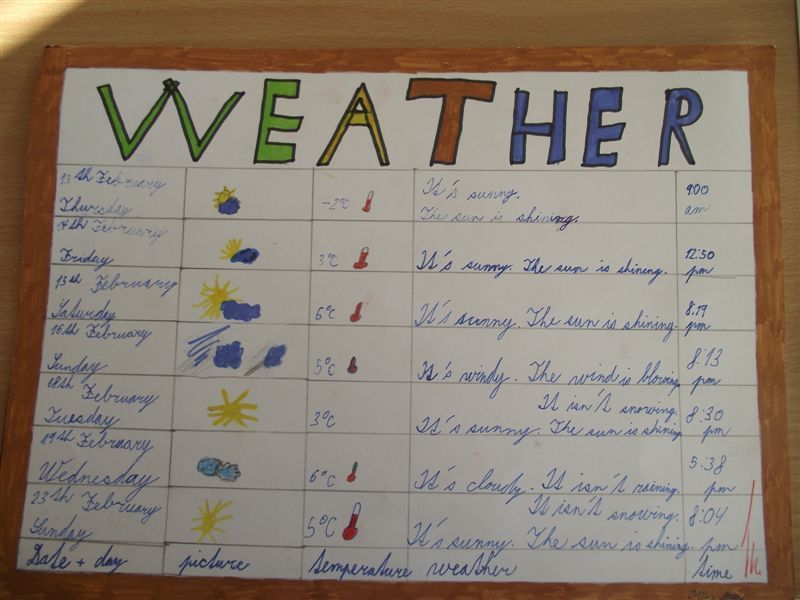 WEATHER
13th February
Thursday
-2°C
It's sunny.
The sun is shining.
9:00
am
14th February
Friday
3°C
It's sunny. The sun is shining.
12:50
pm
15th February
Saturday
6°C
It's sunny. The sun is shining.
8:19
pm
16th February
Sunday
5°C
It's windy. The wind is blowing.
8:13
pm
18th February
Tuesday
3°C
It isn't snowing.
It's sunny. The sun is shining.
8:30
pm
19th February
Wednesday
6°C
It's cloudy. It isn't raining.
5:38
pm
23th February
Sunday
5°C
It isn't snowing.
It's sunny. The sun is shining.
8:04
pm
Date + day picture temperature weather time